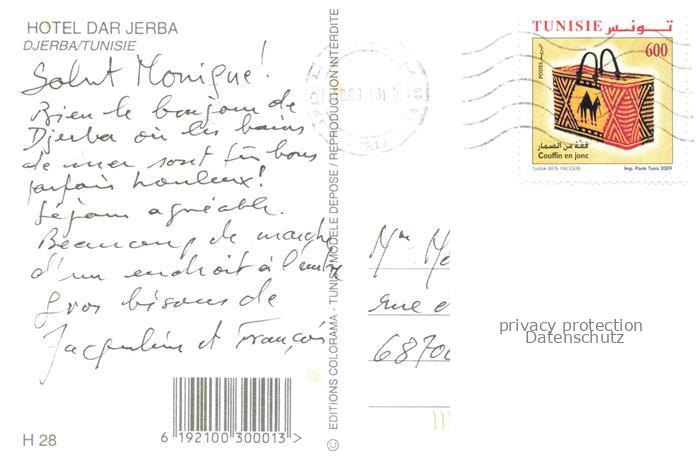 HOTEL DAR JERBA
DJERBA/TUNISIE
Salut Monique!
Bien le bonjour de
Djerba où les bains
de mer sont très bons
parfois houleux!
Séjour agréable.
Beaucoup de marche
d'un endroit à l'autre
Gros bisous de
Jacqueline et François
H 28
6 192100 300013 >
© EDITIONS COLORAMA - TUNIS MODELE DEPOSE / REPRODUCTION INTERDITE
TUNISIE تونس
600
POSTES البريد
قفة من الصمار
Couffin en jonc
Sadok BEN YACOUB Imp. Poste Tunis 2009
Mme Mo
rue
6870
privacy protection
Datenschutz